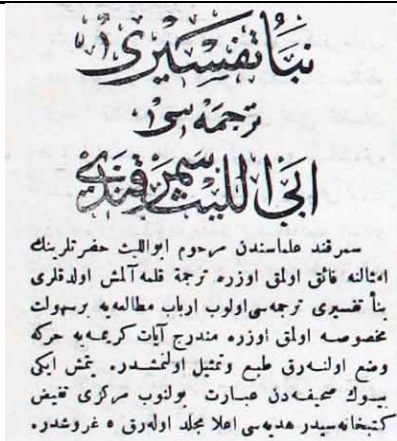 نبأ تفسیری
ترجمه سی
ابی اللیث سمرقندی
سمرقند علماسندن مرحوم ابواللیث حضرتلرینك
امثالنه فائق اولمق اوزره ترجمة قلمه آلمش اولدقلری
بنأ تفسیری ترجمه سی اولوب ارباب مطالعه یه برسهولت
مخصوصه اولمق اوزره مندرج آیات کریمه یه حرکه
وضع اولنه رق طبع وتمثیل اولنمشدر. یتمش ایکی
بیوك صحیفه دن عبارت بولنوب مرکزی
کتبخانه سیدر هدیه سی اعلا مجلد اوله رق ٥ غروشدر.